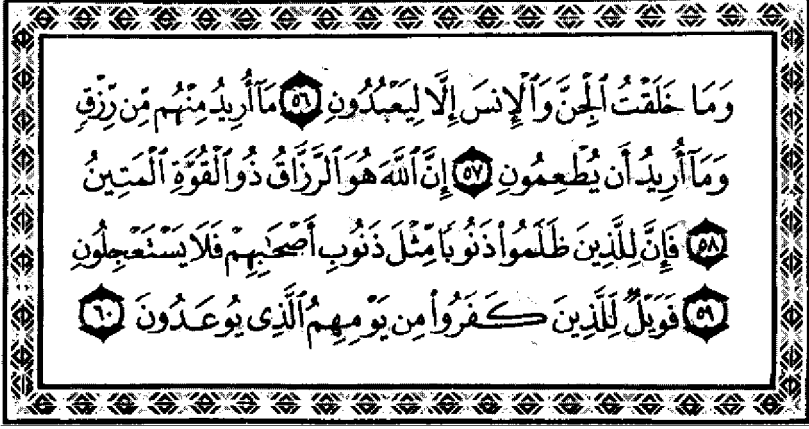 وَمَا خَلَقْتُ ٱلْجِنَّ وَٱلْإِنسَ إِلَّا لِيَعْبُدُونِ ٥٦ مَآ أُرِيدُ مِنْهُم مِّن رِّزْقٍ
وَمَآ أُرِيدُ أَن يُطْعِمُونِ ٥٧ إِنَّ ٱللَّهَ هُوَ ٱلرَّزَّاقُ ذُو ٱلْقُوَّةِ ٱلْمَتِينُ
٥٨ فَإِنَّ لِلَّذِينَ ظَلَمُوا۟ ذَنُوبًا مِّثْلَ ذَنُوبِ أَصْحَـٰبِهِمْ فَلَا يَسْتَعْجِلُونِ
٥٩ فَوَيْلٌ لِّلَّذِينَ كَفَرُوا۟ مِن يَوْمِهِمُ ٱلَّذِى يُوعَدُونَ ٦٠